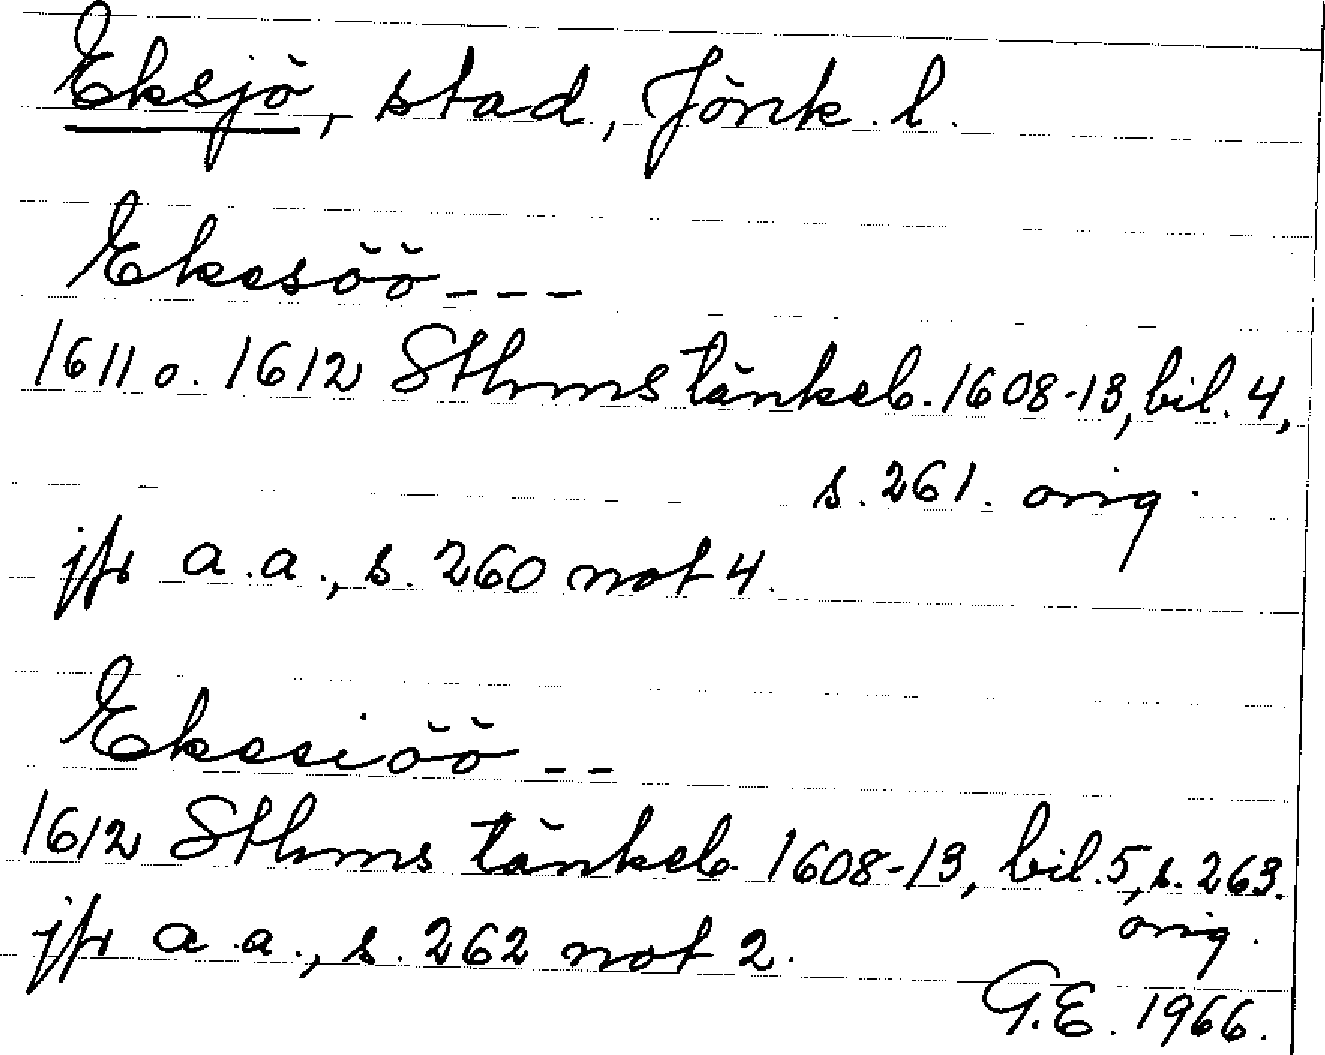 Eksjö, stad, Jönk. l.
Ekesöö - - -
1611 o. 1612 Sthms tänkeb. 1608-13, bil. 4,
s. 261. orig.
jfr a.a., s. 260 not 4.
Ekesiöö - -
1612 Sthms tänkeb. 1608-13, bil. 5, s. 263.
orig.
jfr a.a., s. 262 not 2.
G.E. 1966.